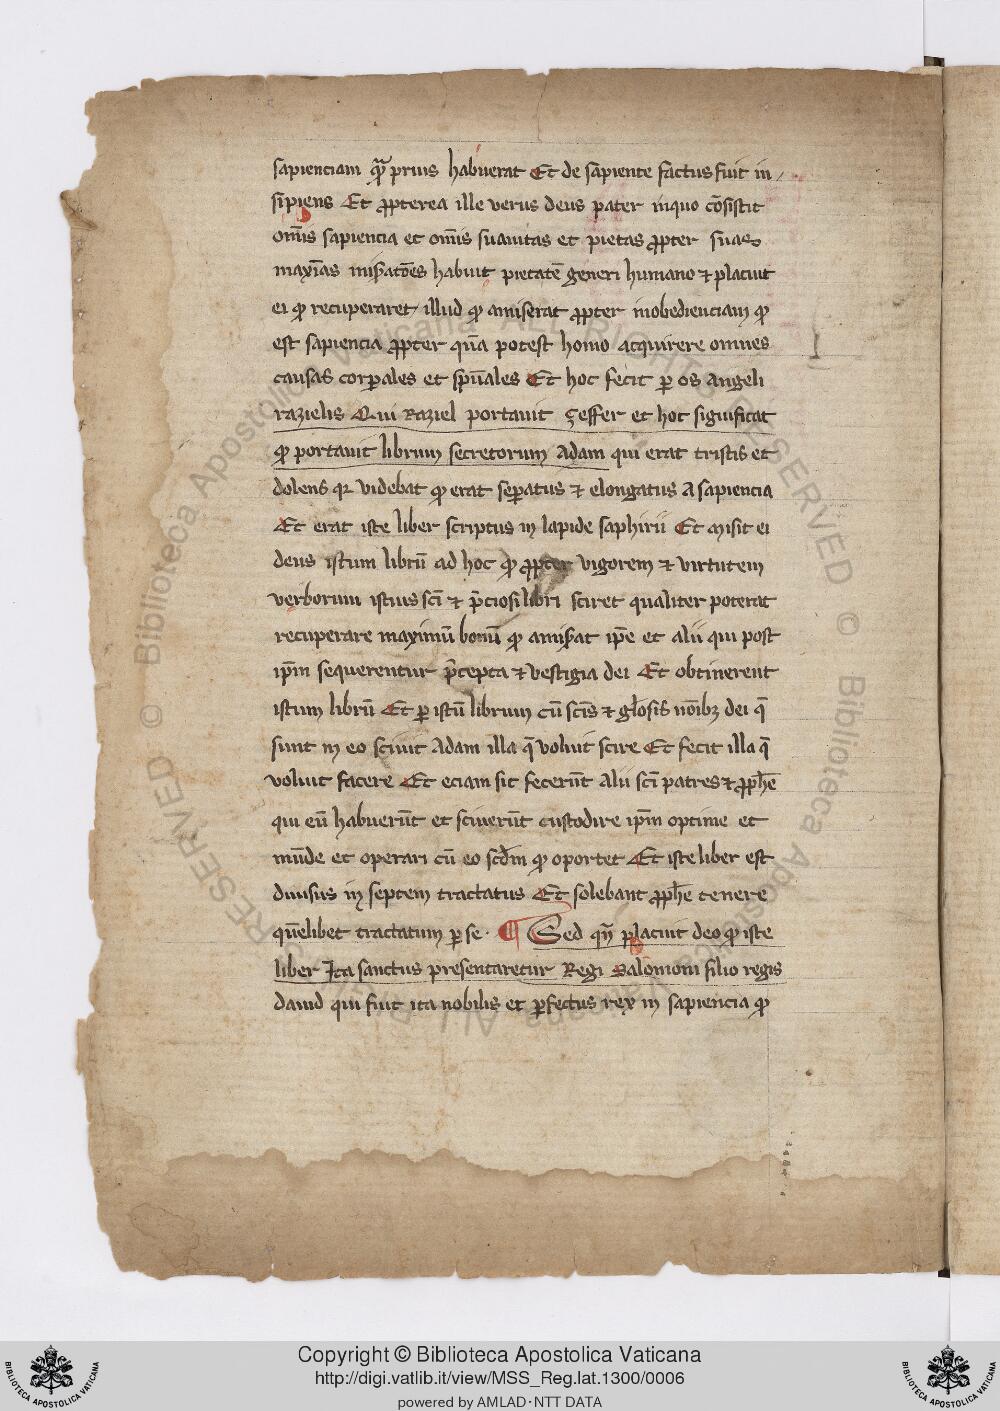 sapienciam q̃ prius habuerat Et de sapiente factus fuit in
sipiens Et ꝓpterea ille verus deus pater inquo cõsistit
om̃is sapiencia et om̃is suauitas et pietas ꝓpter suas
maxĩas mis̃atões habuit pietatẽ generi humano ⁊ placuit
ei ꝙ recuperaret illud ꝙ amiserat ꝓpter inobedienciam ꝙ
est sapiencia ꝓpter quã potest homo acquirere omnes
causas corꝑales et spũales Et hoc fecit ꝑ os angeli
razielis Qui Raziel portauit ceffer et hoc significat
ꝙ portauit librum secretorum Adam qui erat tristis et
dolens qr videbat ꝙ erat seꝑatus ⁊ elongatus A sapiencia
Et erat iste liber scriptus in lapide saphirii Et misit ei
deus istum librũ ad hoc ꝙ ꝓpter vigorem ⁊ virtutem
verborum istius sc̃i ⁊ p̃ciosi libri sciret qualiter poterat
recuperare maximũ bonũ ꝙ amis̃at ip̃e et alii qui post
ip̃m sequerentur p̃cepta ⁊ vestigia dei Et obtinerent
istum librũ Et ꝑ istũ librum cũ sc̃is ⁊ gl̃osis nõibꝫ dei q̃
sunt in eo sciuit Adam illa q̃ voluit scire Et fecit illa q̃
voluit facere Et eciam sic fecerũt alii sc̃i patres ⁊ ꝓph̃e
qui eũ habuerũt et sciuerũt custodire ip̃m optime et
mũde et operari cũ eo scd̃m ꝙ oportet Et iste liber est
diuisus in septem tractatus Et solebant ꝓph̃e tenere
quẽlibet tractatum ꝑ se · ¶ Sed qñ placuit deo ꝙ iste
liber Ita sanctus presentaretur Regi Salomoni filio regis
dauid qui fuit ita nobilis et ꝑfectus rex in sapiencia ꝙ
Copyright © Biblioteca Apostolica Vaticana
http://digi.vatlib.it/view/MSS_Reg.lat.1300/0006
powered by AMLAD·NTT DATA